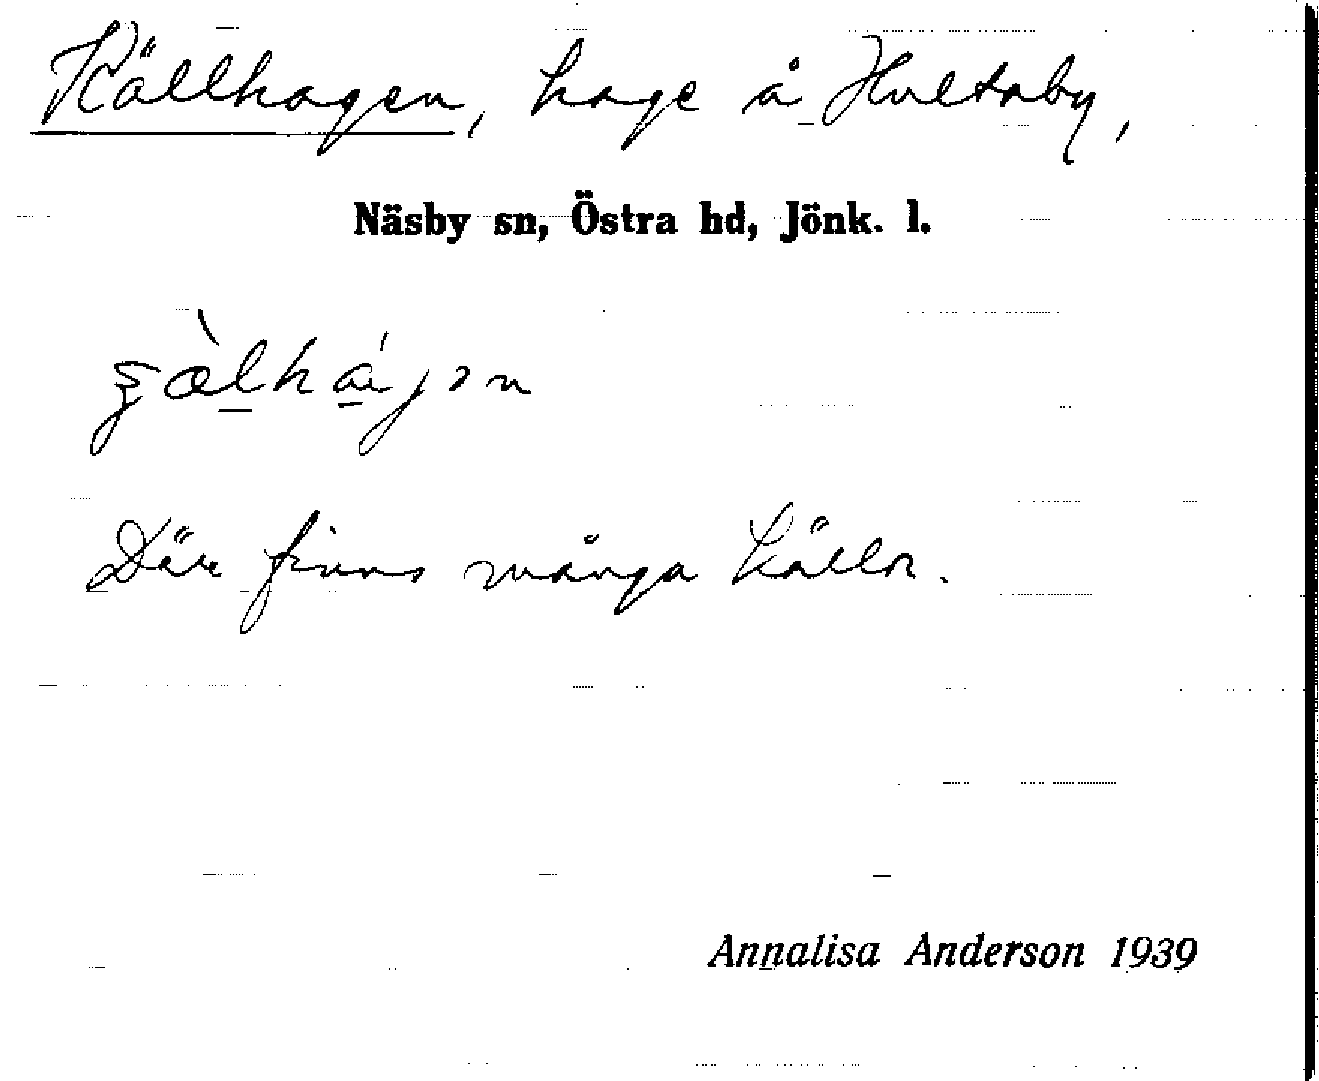 Källhagen, hage å Hultaby,
Näsby sn, Östra hd, Jönk. l.
Där finns många källor.
Annalisa Anderson 1939